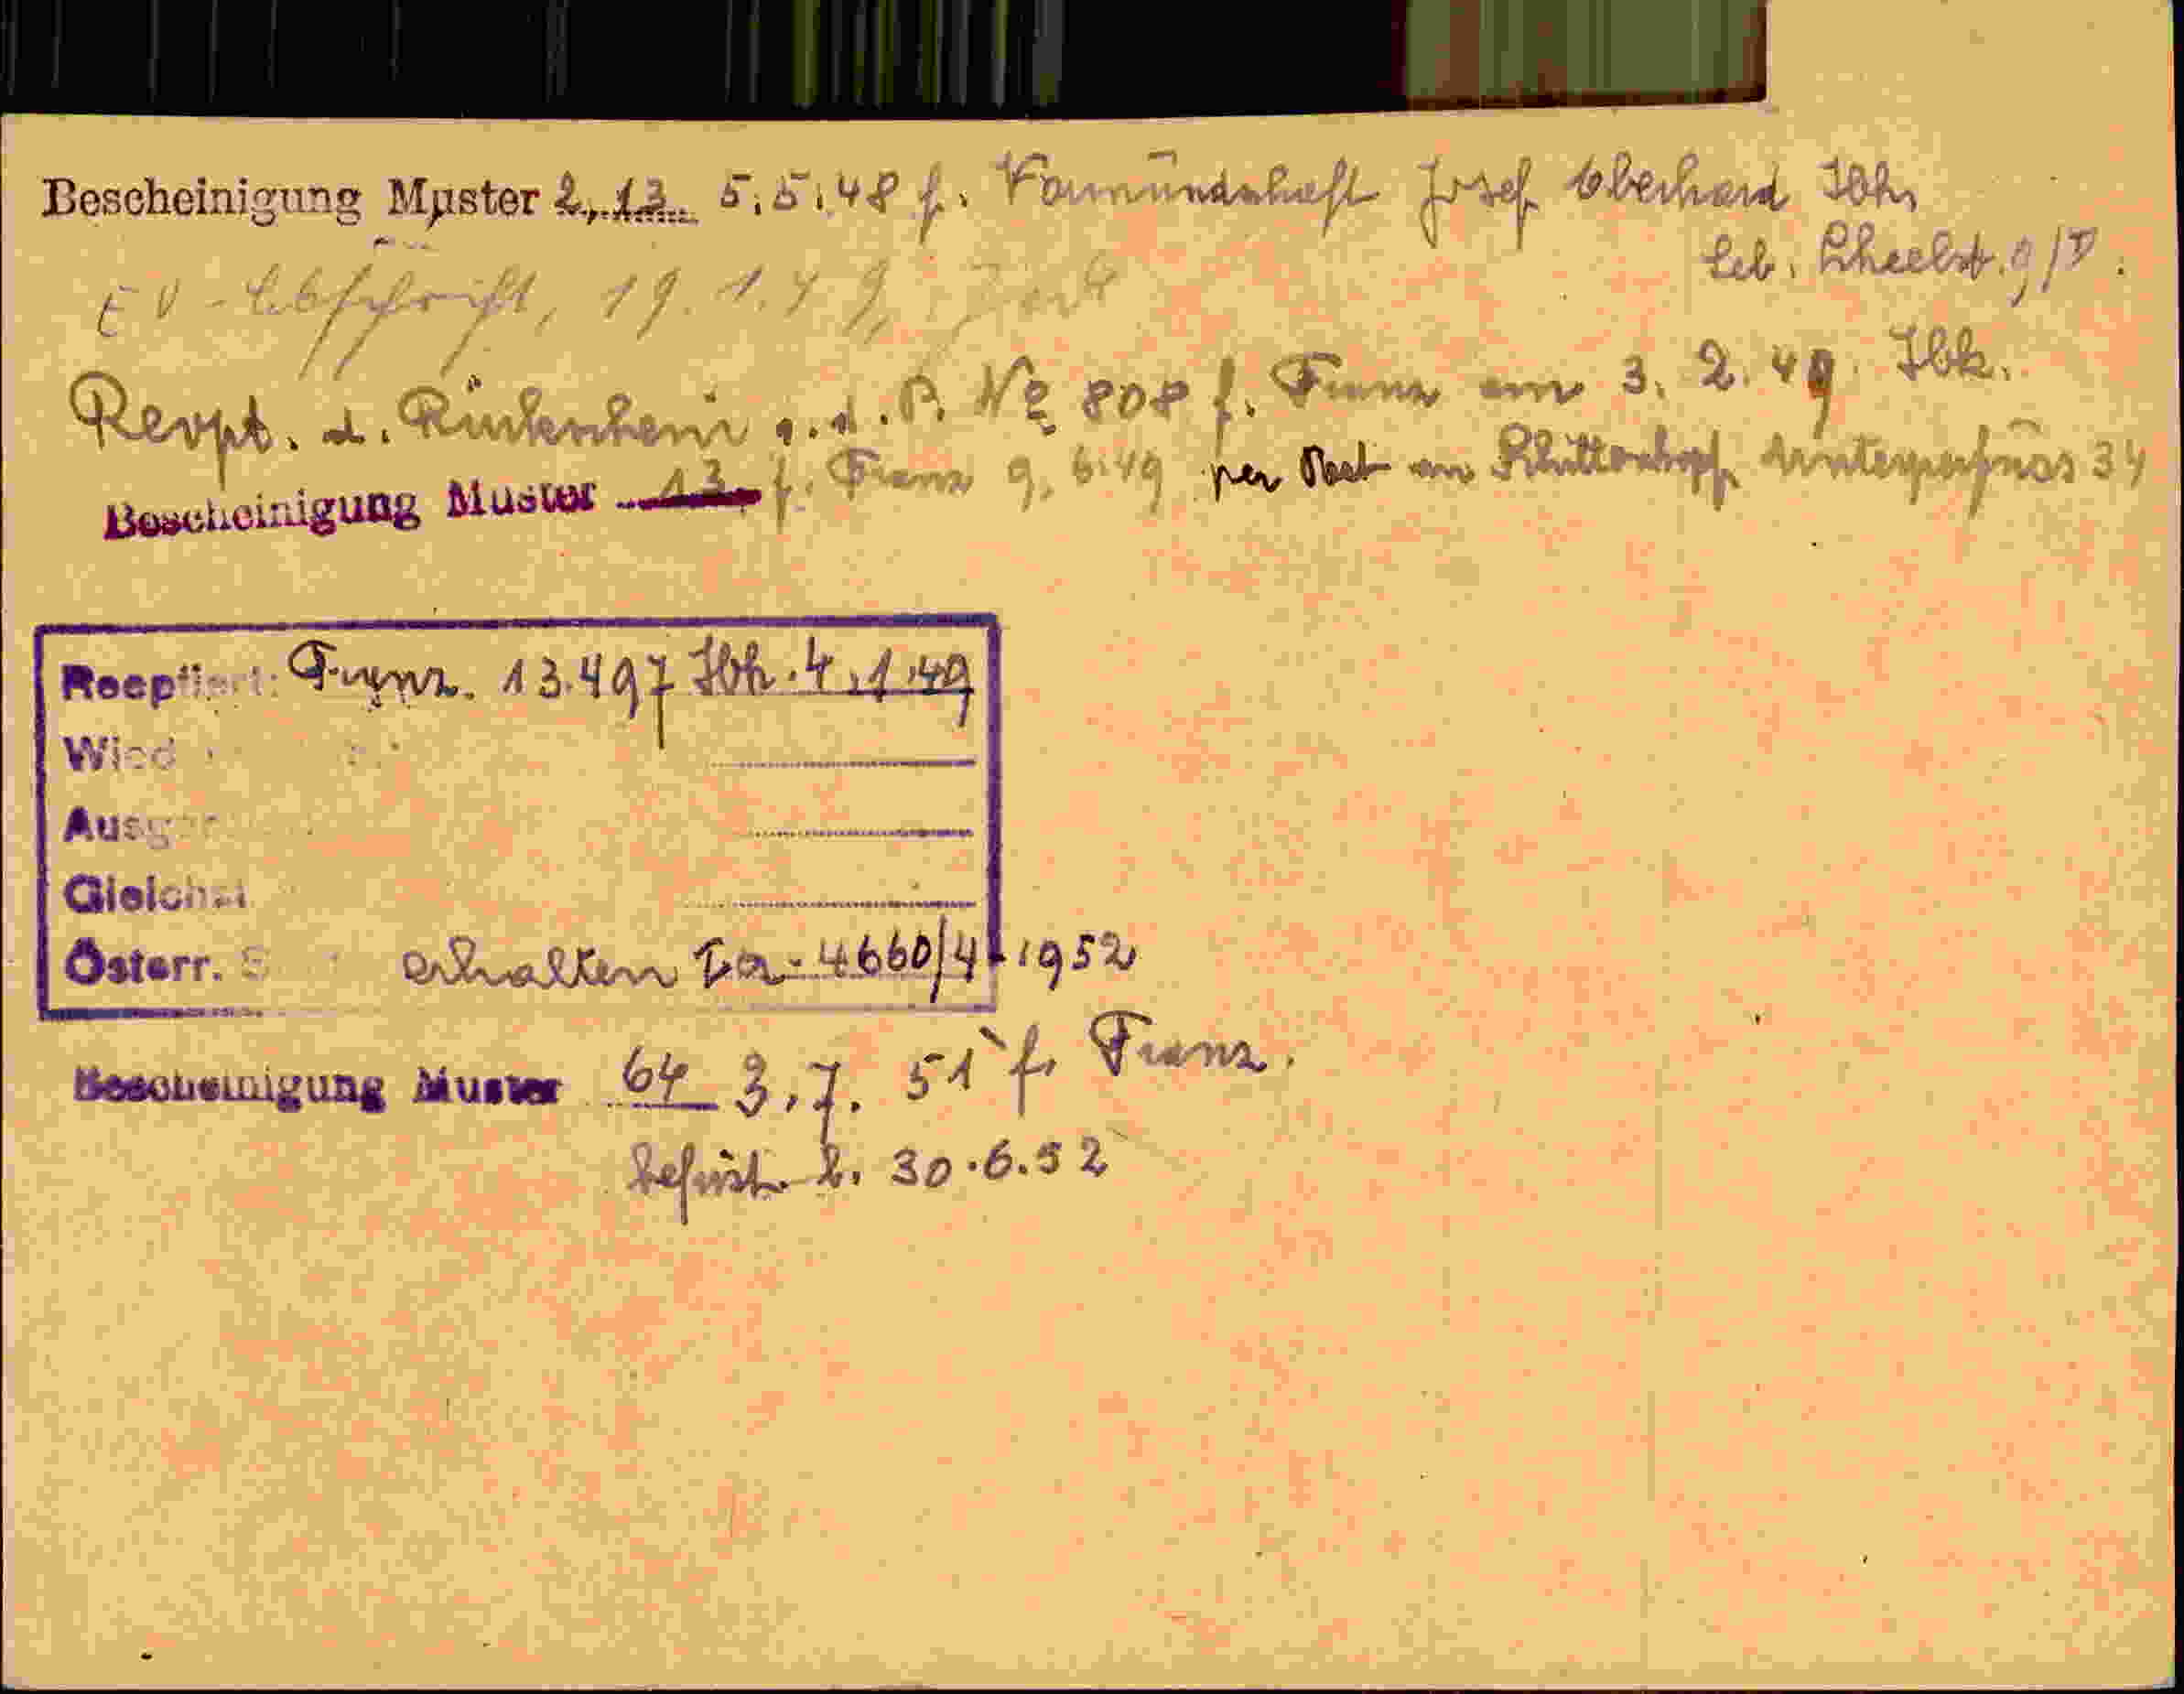 Bescheinigung Muster 2, 13 5.5.48 f. Vormundschaft Josef Oberhard Ibk,
Leb. 9/I.
EV-Abschrift, 19.1.49,
Rexpt. d. a.d. R. No 808 f. Franz am 3.2.49. Ibk.
Bescheinigung Muster 13 f. Franz 9.6.49 per Post an Unterperfuss 34
Reeptiert: Franz. 13.497 Ibk. 4.1.49
Wied
Ausgef
Gleichst
Österr. S erhalten Ia-4660/4-1952
Bescheinigung Muster 64 3.7.51 f. Franz.
befrist. b. 30.6.52